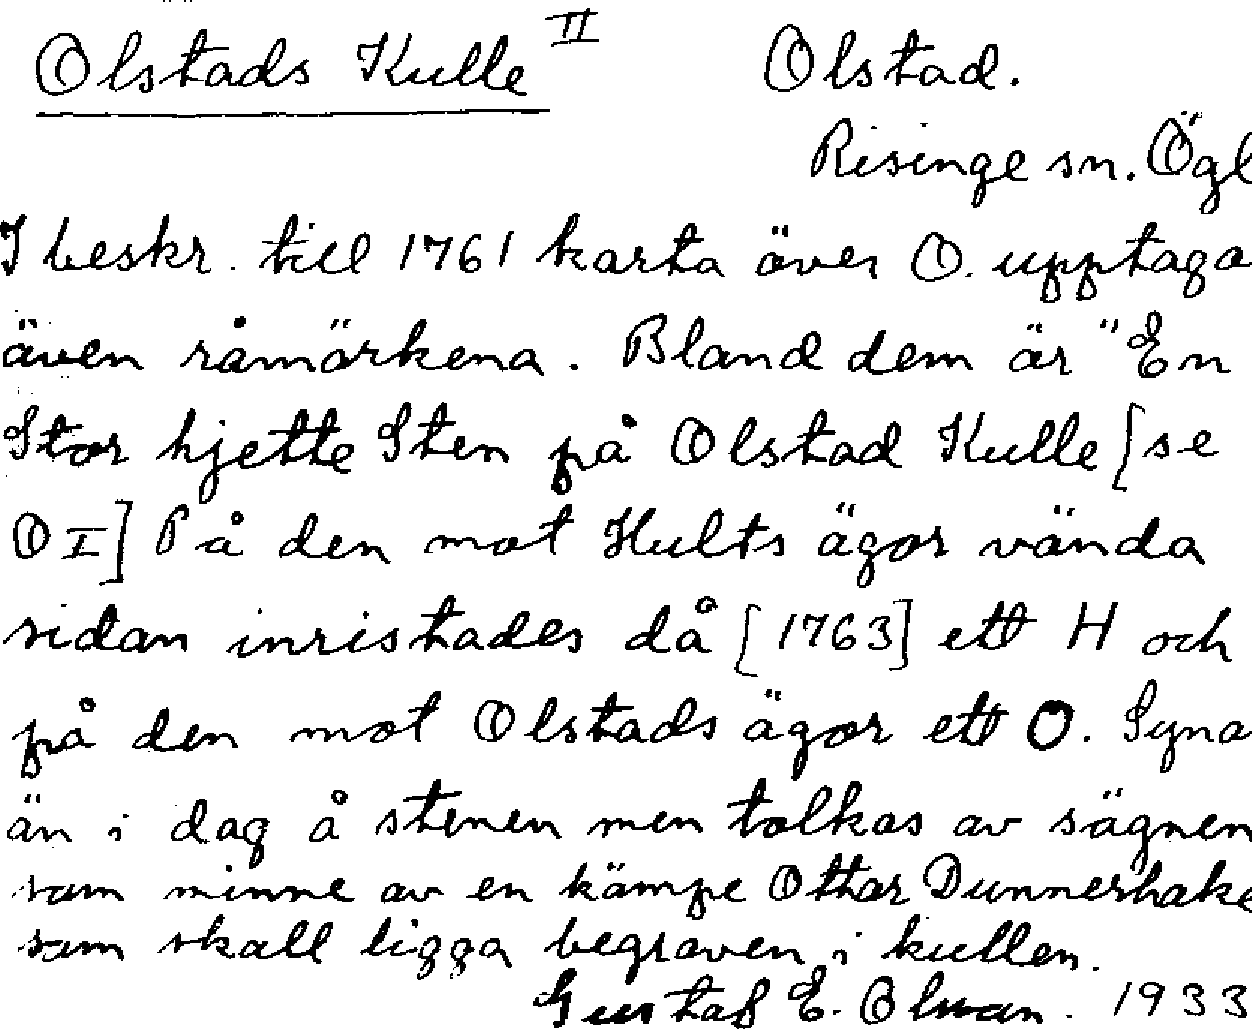 Olstads Kulle II Olstad.
Risinge sn. Ögl
I beskr. till 1761 karta över O. upptaga
även råmärkena. Bland dem är "En
Stor hjette Sten på Olstad Kulle [se
O I] På den mot Hults ägor vända
sidan inristades då [1763] ett H och
på den mot Olstads ägor ett O. Syna
än i dag å stenen men tolkas av sägnen
som minne av en kämpe Ottar Dunnerhake
som skall ligga begraven i kullen.
Gustaf E. 1933